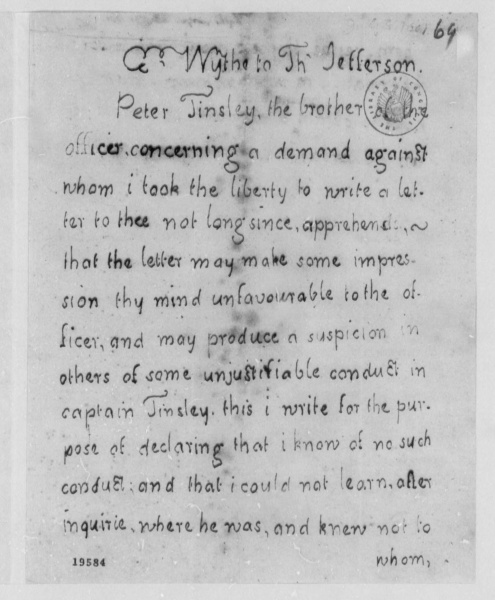 69
G. Wythe to Th Jefferson.
Peter Tinsley, the brother of the
officer, concerning a demand against
whom i took the liberty to write a let-
ter to thee not long since, apprehends,
that the letter may make some impres-
sion thy mind unfavourable to the of-
ficer, and may produce a suspicion in
others of some unjustifiable conduct in
captain Tinsley. this i write for the pur-
pose of declaring that i know of no such
conduct; and that i could not learn, after
inquirie, where he was, and knew not to
19584
whom,